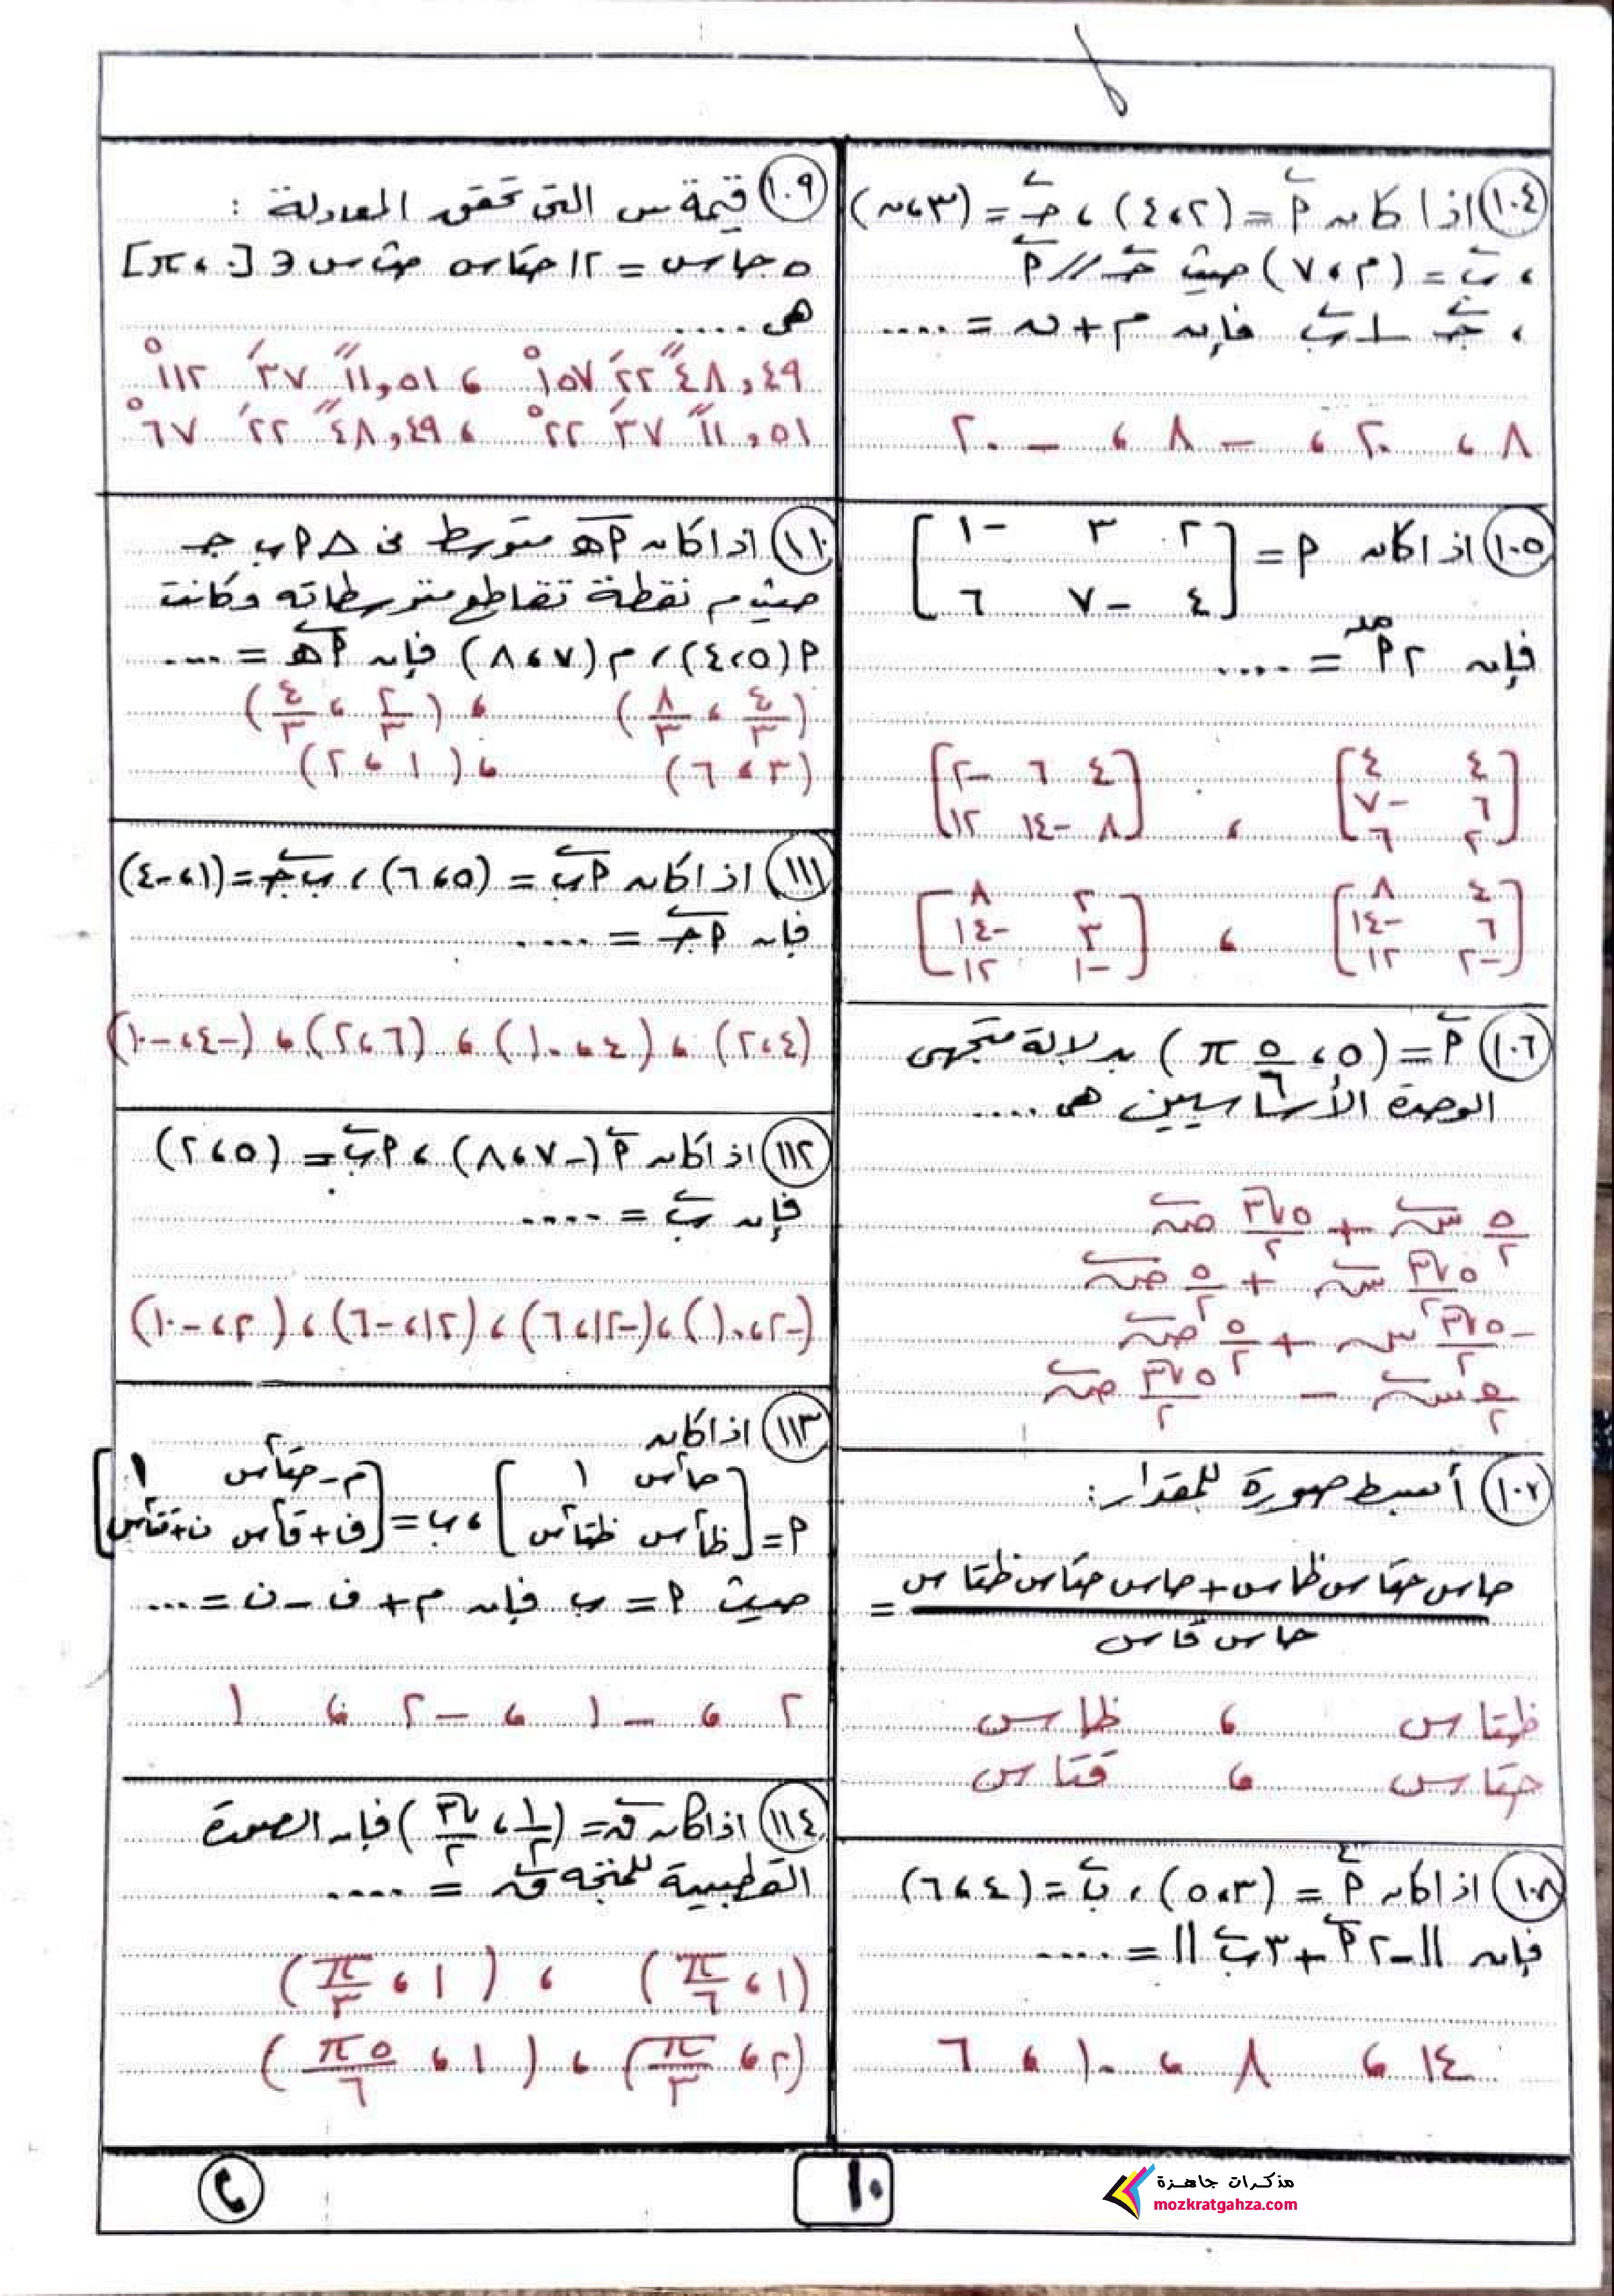 ١٠٤ اذا كان م = (٢ ، ٤) ، جـ = (٣ ، ن)
، ب = (م ، ٧) حيث جـ // م
، جـ ⊥ ب فإن م + ن = ....
٨ ، ٢٠ ، -٨ ، -٢٠
١٠٥ اذا كان م = [ ٢ ٣ -١
٤ -٧ ٦ ]
فإن ٢م مد = ....
[ ٤ ٤ ، [ ٤ ٦ -٢
٦ -٧ ٨ -١٤ ١٢ ]
٢ ٦ ]
[ ٤ ٨ ، [ ٢ ٨
٦ -١٤ ٣ -١٤
-٢ ١٢ ] -١ ١٢ ]
١٠٦ م = (٥ ، ٥/٦ π) بدلالة متجهى
الوحدة الأساسيين هى ....
٥/٢ س + ٥√٣/٢ ص
٥√٣/٢ س + ٥/٢ ص
-٥√٣/٢ س + ٥/٢ ص
٥/٢ س - ٥√٣/٢ ص
١٠٧ أبسط صورة للمقدار :
حاس حتاس ظاس + حاس حتاس ظتاس =
حاس قاس
ظتاس ، ظاس
حتاس ، قتاس
١٠٨ اذا كان م = (٣ ، ٥) ، ب = (٤ ، ٦)
فإن || -٢م + ٣ب || = ....
١٤ ، ٨ ، ١٠ ، ٦
١٠٩ قيمة س التى تحقق المعادلة :
٥ حاس = ١٢ حتاس حيث س ∈ [٠ ، π]
هى ....
٤٨,٤٩ً ٢٢َ ١٥٧° ، ١١,٥١ً ٣٧َ ١١٢°
١١,٥١ً ٣٧َ ٢٢° ، ٤٨,٤٩ً ٢٢َ ٦٧°
١١٠ اذا كان م هـ متوسط فى Δ م ب جـ
حيث م نقطة تقاطع متوسطاته وكانت
م (٥ ، ٤) ، م (٧ ، ٨) فإن م هـ = ....
(٤/٣ ، ٨/٣) ، (٢/٣ ، ٤/٣)
(٣ ، ٦) ، (١ ، ٢)
١١١ اذا كان م ب = (٥ ، ٦) ، ب جـ = (١ ، -٤)
فإن م جـ = ....
(٤ ، ٢) ، (٤ ، ١٠) ، (٦ ، ٢) ، (-٤ ، -١٠)
١١٢ اذا كان م (-٧ ، ٨) ، م ب = (٥ ، ٢)
فإن ب = ....
(-٢ ، ١٠) ، (-١٢ ، ٦) ، (١٢ ، -٦) ، (٢ ، -١٠)
١١٣ اذا كان
م = [ حا٢س ١ ، ب = [ م - حتا٢س ١
ظا٢س ظتا٢س ] ف + قا٢س ن + قتا٢س ]
حيث م = ب فإن م + ف - ن = ...
٢ ، -١ ، -٢ ، ١
١١٤ اذا كان ق = (١/٢ ، √٣/٢) فإن الصورة
القطبية للمتجه ق = ....
(١ ، π/٦) ، (١ ، π/٣)
(٢ ، π/٣) ، (١ ، ٥π/٦)
١٠
مذكرات جاهزة
mozkratgahza.com